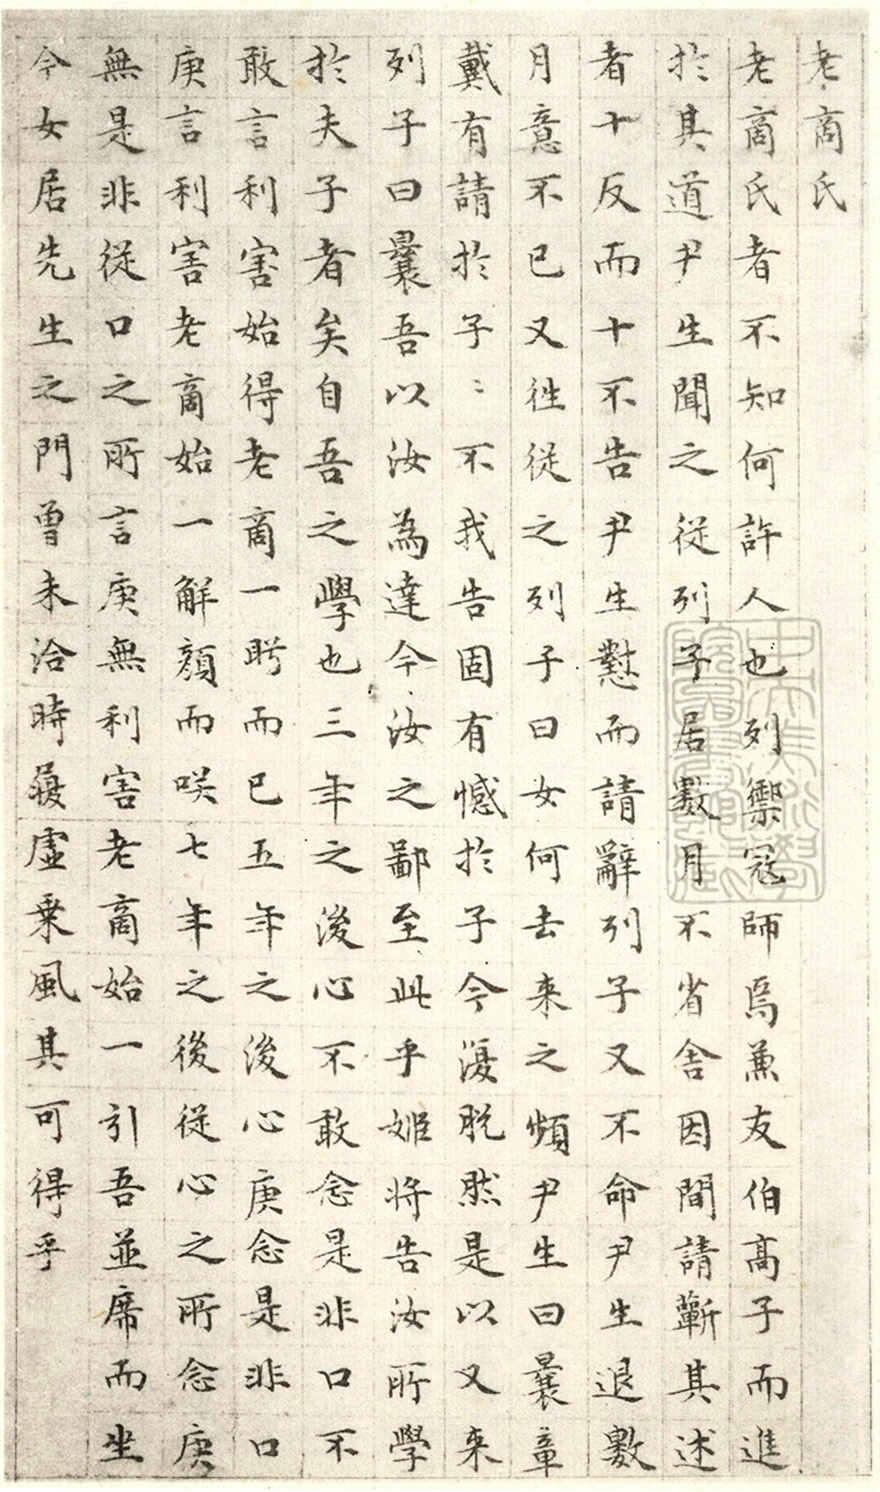 老商氏
老商氏者不知何許人也列禦冦師焉兼友伯髙子而進
扵其道尹生聞之從列子居數月不省舎因間請蘄其述
者十反而十不告尹生懟而請辭列子又不命尹生退數
月意不已又徃從之列子曰女何去来之頻尹生曰曩章
戴有請扵子〻不我告固有憾扵子今復脫然是以又来
列子曰曩吾以汝為達今汝之鄙至此乎姬将告汝所學
扵夫子者矣自吾之學也三年之後心不敢念是非口不
敢言利害始得老商一眄而已五年之後心庚念是非口
庚言利害老商始一解顔而咲七年之後從心之所念庚
無是非從口之所言庚無利害老商始一引吾並席而坐
今女居先生之門曾未洽時履虛乗風其可得乎